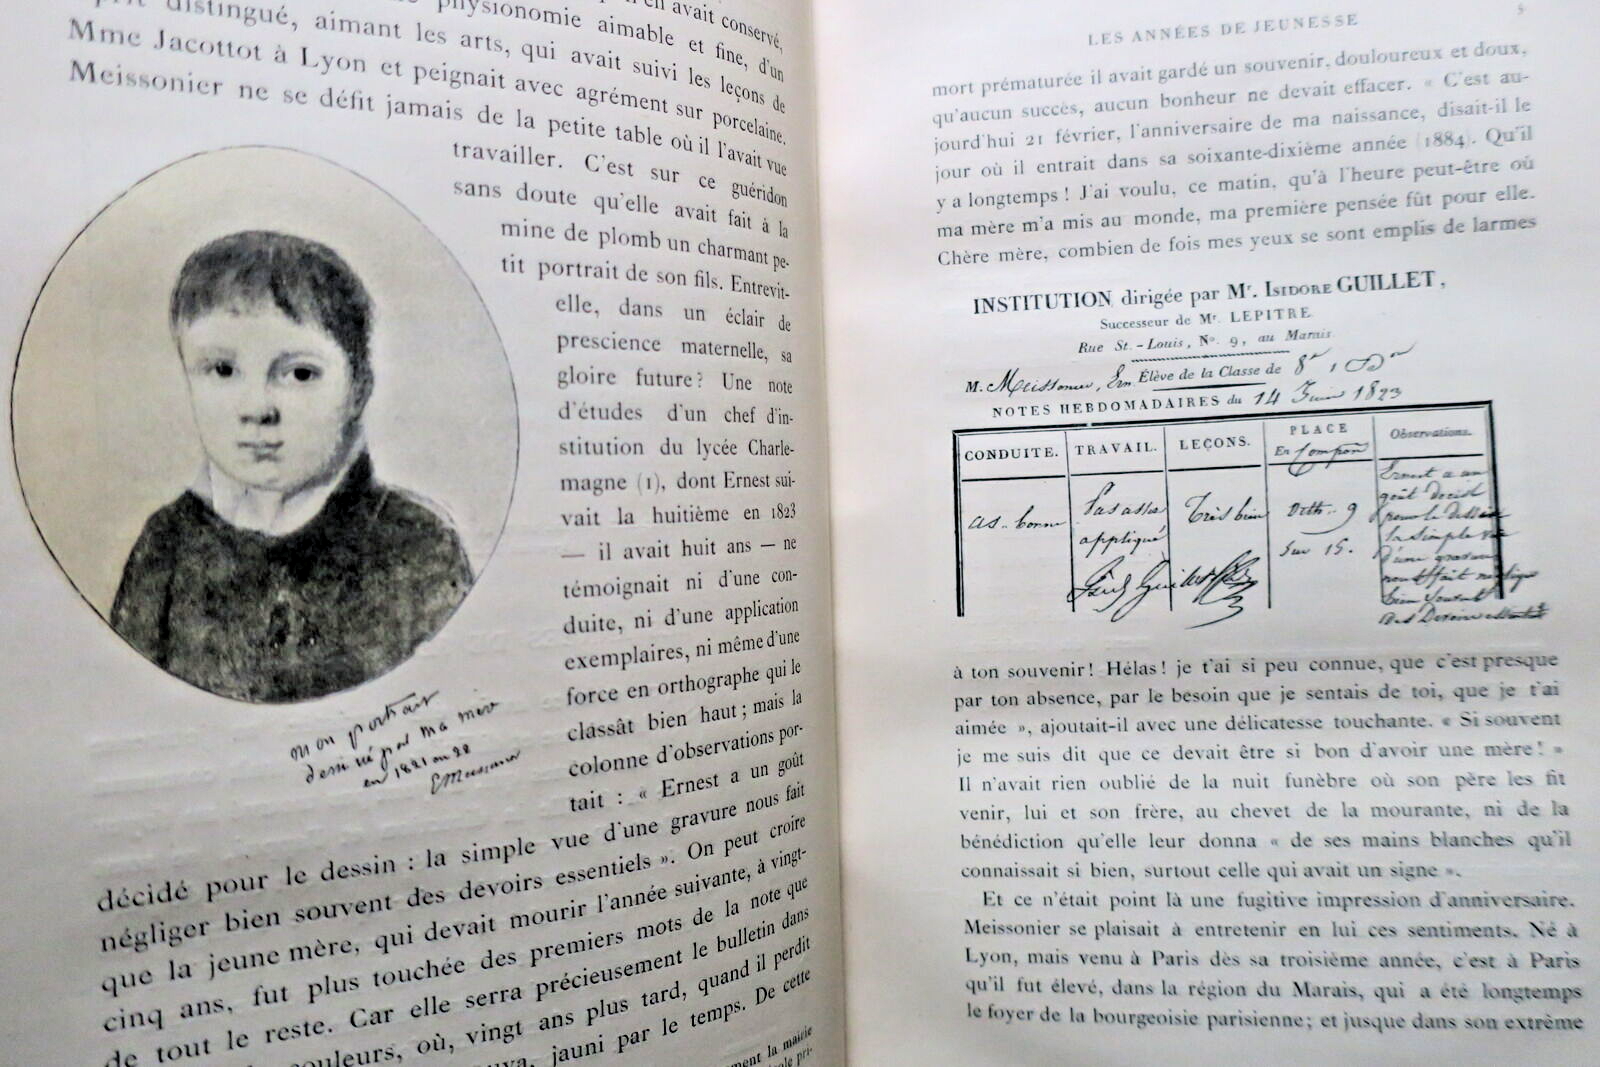 n'en avait conservé,
physionomie aimable et fine, d'un
distingué, aimant les arts, qui avait suivi les leçons de
Mme Jacottot à Lyon et peignait avec agrément sur porcelaine.
Meissonier ne se défit jamais de la petite table où il l'avait vue
travailler. C'est sur ce guéridon
sans doute qu'elle avait fait à la
mine de plomb un charmant pe-
tit portrait de son fils. Entrevit-
elle, dans un éclair de
prescience maternelle, sa
gloire future? Une note
d'études d'un chef d'in-
stitution du lycée Charle-
magne (1), dont Ernest sui-
vait la huitième en 1823
— il avait huit ans — ne
témoignait ni d'une con-
duite, ni d'une application
exemplaires, ni même d'une
force en orthographe qui le
classât bien haut; mais la
colonne d'observations por-
tait : « Ernest a un goût
décidé pour le dessin : la simple vue d'une gravure nous fait
négliger bien souvent des devoirs essentiels ». On peut croire
que la jeune mère, qui devait mourir l'année suivante, à vingt-
cinq ans, fut plus touchée des premiers mots de la note que
de tout le reste. Car elle serra précieusement le bulletin dans
couleurs, où, vingt ans plus tard, quand il perdit
jauni par le temps. De cette
la mairie
mon portrait
dessiné par ma mère
en 1821 ou 22
EMeissonier
LES ANNÉES DE JEUNESSE 5
mort prématurée il avait gardé un souvenir, douloureux et doux,
qu'aucun succès, aucun bonheur ne devait effacer. « C'est au-
jourd'hui 21 février, l'anniversaire de ma naissance, disait-il le
jour où il entrait dans sa soixante-dixième année (1884). Qu'il
y a longtemps! J'ai voulu, ce matin, qu'à l'heure peut-être où
ma mère m'a mis au monde, ma première pensée fût pour elle.
Chère mère, combien de fois mes yeux se sont emplis de larmes
INSTITUTION dirigée par Mr. ISIDORE GUILLET,
Successeur de Mr. LEPITRE
Rue St.-Louis, No. 9, au Marais
M. Meissonier, Ern. Élève de la Classe de 8e
NOTES HEBDOMADAIRES du 14 Juin 1823
CONDUITE. TRAVAIL. LEÇONS. PLACE En Compon Observations.
as.. bonne
Pas assez
appliqué
Très bien
Orth.. 9
Sur 15.
Ernest a un
goût décidé
pour le dessin
la simple vue
d'une gravure
nous fait négliger
bien souvent
des Devoirs essentiels
à ton souvenir! Hélas! je t'ai si peu connue, que c'est presque
par ton absence, par le besoin que je sentais de toi, que je t'ai
aimée », ajoutait-il avec une délicatesse touchante. « Si souvent
je me suis dit que ce devait être si bon d'avoir une mère! »
Il n'avait rien oublié de la nuit funèbre où son père les fit
venir, lui et son frère, au chevet de la mourante, ni de la
bénédiction qu'elle leur donna « de ses mains blanches qu'il
connaissait si bien, surtout celle qui avait un signe ».
Et ce n'était point là une fugitive impression d'anniversaire.
Meissonier se plaisait à entretenir en lui ces sentiments. Né à
Lyon, mais venu à Paris dès sa troisième année, c'est à Paris
qu'il fut élevé, dans la région du Marais, qui a été longtemps
le foyer de la bourgeoisie parisienne; et jusque dans son extrême